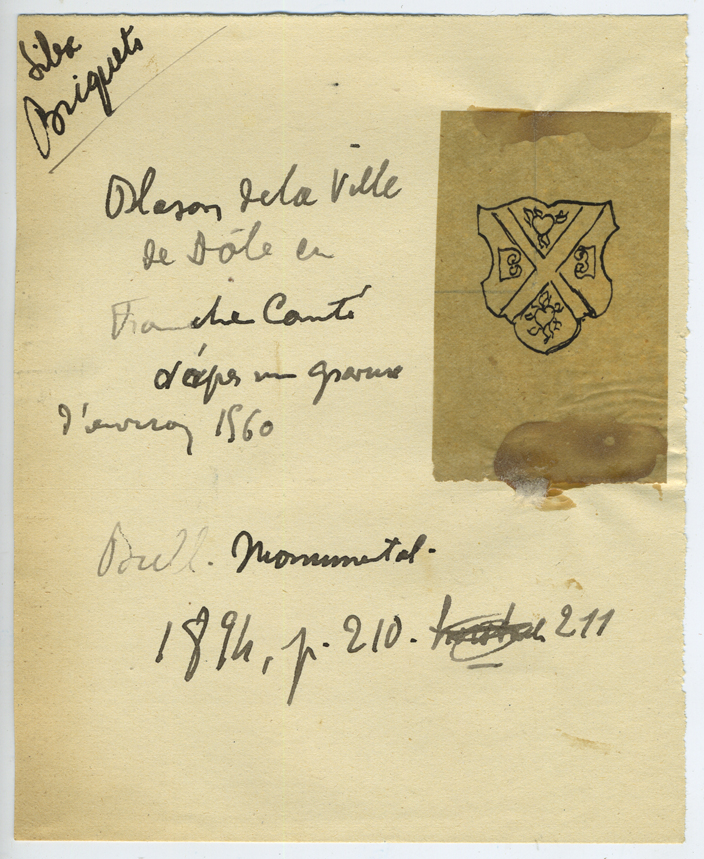 Silex
Briquets
Blason de la Ville
de Dôle en
Franche Comté
d'après une gravure
d'environ 1560
Bull. Monumental.
1894, p. 210. 211